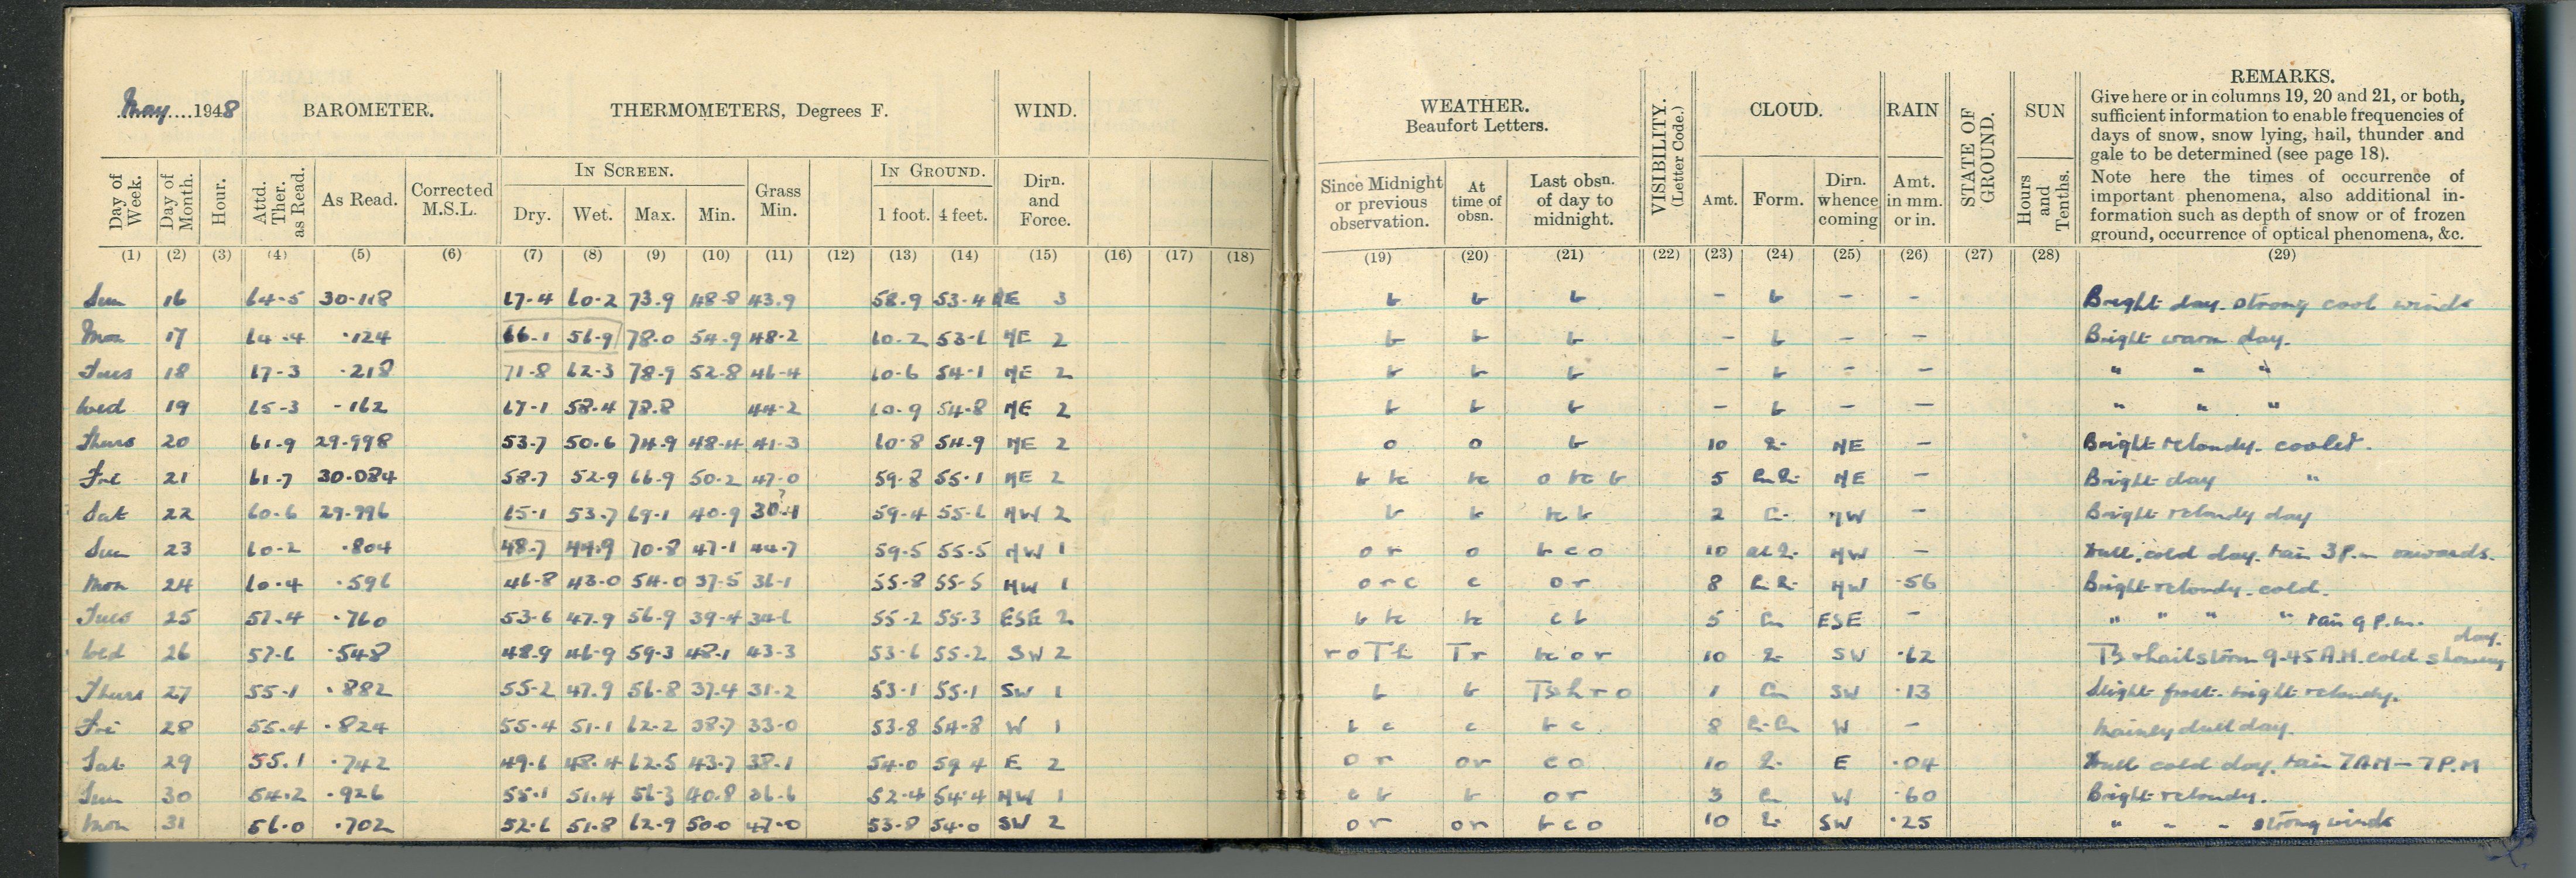 May....1948 BAROMETER. THERMOMETERS, Degrees F. WIND. WEATHER. Beaufort Letters. VISIBILITY. (Letter Code.) CLOUD. RAIN STATE OF GROUND. SUN REMARKS.
Give here or in columns 19, 20 and 21, or both,
sufficient information to enable frequencies of
days of snow, snow lying, hail, thunder and
gale to be determined (see page 18).
Note here the times of occurrence of
important phenomena, also additional in-
formation such as depth of snow or of frozen
ground, occurrence of optical phenomena, &c.
Day of Week. Day of Month. Hour. Attd. Ther. as Read. As Read. Corrected M.S.L. In Screen. Dry. Wet. Max. Min. Grass Min. In Ground. 1 foot. 4 feet. Dirn. and Force. Since Midnight or previous observation. At time of obsn. Last obsn. of day to midnight. Amt. Form. Dirn. whence coming Amt. in mm. or in. Hours and Tenths.
(1) (2) (3) (4) (5) (6) (7) (8) (9) (10) (11) (12) (13) (14) (15) (16) (17) (18) (19) (20) (21) (22) (23) (24) (25) (26) (27) (28) (29)
Sun 16 64.5 30.118 67.4 60.2 73.9 48.8 43.9 58.9 53.4 NE 3 b b b - b - - Bright day. strong cool winds
Mon 17 64.4 .124 66.1 56.9 78.0 54.9 48.2 60.2 53.6 NE 2 b b b - b - - Bright warm day.
Tues 18 67.3 .218 71.8 62.3 78.9 52.8 46.4 60.6 54.1 NE 2 b b b - b - - " " "
Wed 19 65.3 .162 67.1 58.4 78.8 44.2 60.9 54.8 NE 2 b b b - b - - " " "
Thurs 20 61.9 29.998 53.7 50.6 74.9 48.4 41.3 60.8 54.9 NE 2 o o b 10 NE - Bright & cloudy. cooler.
Fri 21 61.7 30.084 58.7 52.9 66.9 50.2 47.0 59.8 55.1 NE 2 b bc bc o bc b 5 NE - Bright day "
Sat 22 60.6 29.996 65.1 53.7 69.1 40.9 30.1 ? 59.4 55.6 NW 2 b b bc b 2 NW - Bright & cloudy day
Sun 23 60.2 .804 48.7 44.9 70.8 47.1 44.7 59.5 55.5 NW 1 o r o b c o 10 NW - Dull, cold day. rain 3 P.m onwards.
Mon 24 60.4 .596 46.8 43.0 54.0 37.5 36.1 55.8 55.5 NW 1 o r c c o r 8 NW .56 Bright & cloudy. cold.
Tues 25 57.4 .760 53.6 47.9 56.9 39.4 34.6 55.2 55.3 ESE 2 b bc bc c b 5 Cu ESE - " " " " rain 9 P.m.
Wed 26 57.6 .548 48.9 46.9 59.3 48.1 43.3 53.6 55.2 SW 2 r o T h T r bc o r 10 SW .62 Ts & hailstorm 9.45 A.M. cold showery day.
Thurs 27 55.1 .882 55.2 47.9 56.8 37.4 31.2 53.1 55.1 SW 1 b b Ts h r o 1 Cu SW .13 Slight frost. bright & cloudy.
Fri 28 55.4 .824 55.4 51.1 62.2 38.7 33.0 53.8 54.8 W 1 b c c b c 8 W - Mainly dull day.
Sat 29 55.1 .742 49.6 48.4 62.5 43.7 38.1 54.0 54.4 E 2 o r o r c o 10 E .04 Dull cold day. rain 7 AM - 7 P.M
Sun 30 54.2 .926 55.1 51.4 56.3 40.8 36.6 52.4 54.4 NW 1 c b b o r 3 Cu W .60 Bright & cloudy.
Mon 31 56.0 .702 52.6 51.8 62.9 50.0 47.0 53.8 54.0 SW 2 o r o r b c o 10 SW .25 " " " strong winds